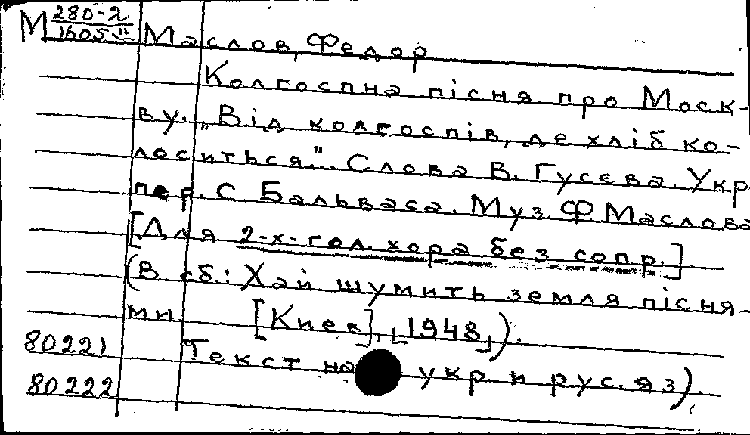 М 280-2 Маслов, Федор
Колгоспна пісня про Моск-
ву. „Від колгоспів, де хліб ко-
лоситься". Слова В. Гусєва. Укр
пер. С Бальваса. Муз. Ф Маслова
[Для 2-х-гол. хора без сопр.]
(В сб.: Хай шумить земля пісня-
ми [Киев], [1948]).
80221 Текст на укр и рус. яз).
80222